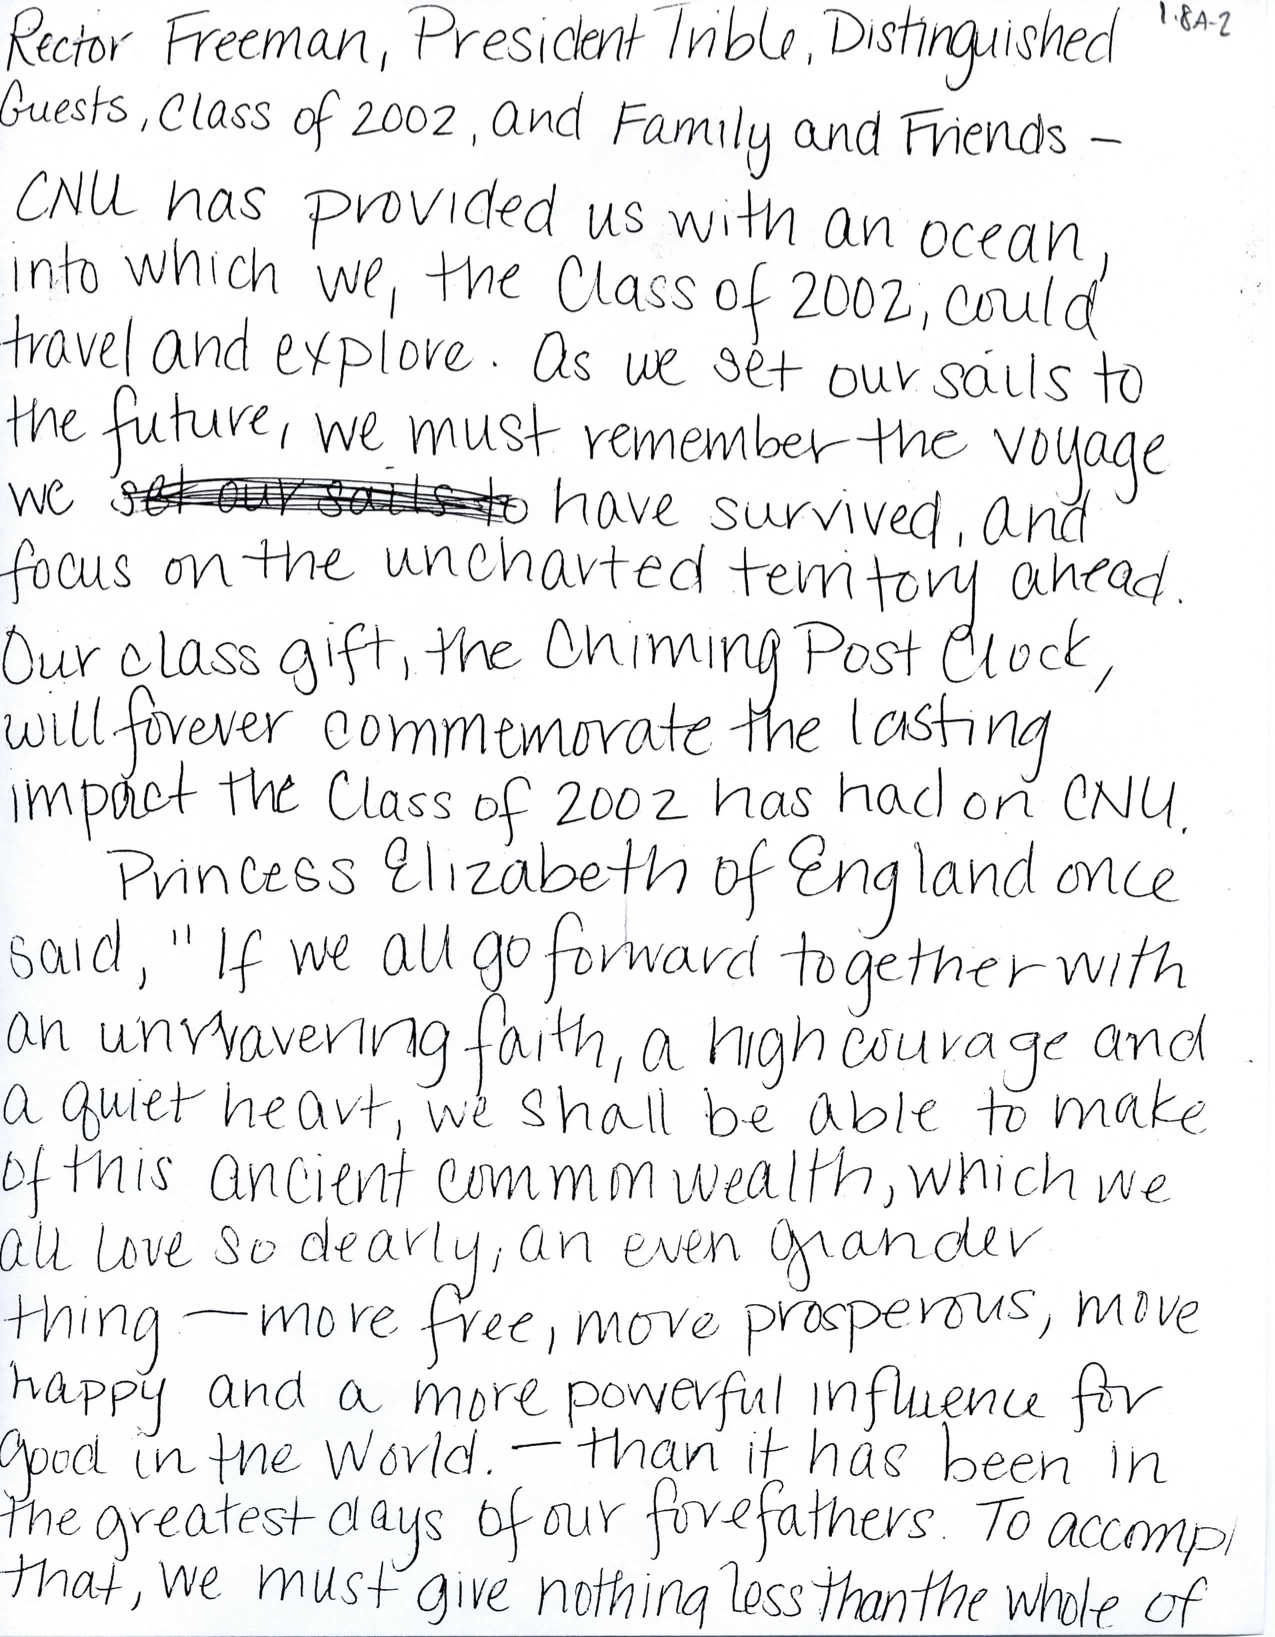 Rector Freeman, President Trible, Distinguished 1.8A-2
Guests, Class of 2002, and Family and Friends –
CNU has provided us with an ocean,
into which we, the Class of 2002, could
travel and explore. As we set our sails to
the future, we must remember the voyage
we set our sails to have survived, and
focus on the uncharted territory ahead.
Our class gift, the Chiming Post Clock,
will forever commemorate the lasting
impact the Class of 2002 has had on CNU.
Princess Elizabeth of England once
said, "If we all go forward together with
an unwavering faith, a high courage and
a quiet heart, we shall be able to make
of this ancient commonwealth, which we
all love so dearly, an even grander
thing — more free, more prosperous, more
happy and a more powerful influence for
good in the World. — than it has been in
the greatest days of our forefathers. To accompl
that, we must give nothing less than the whole of